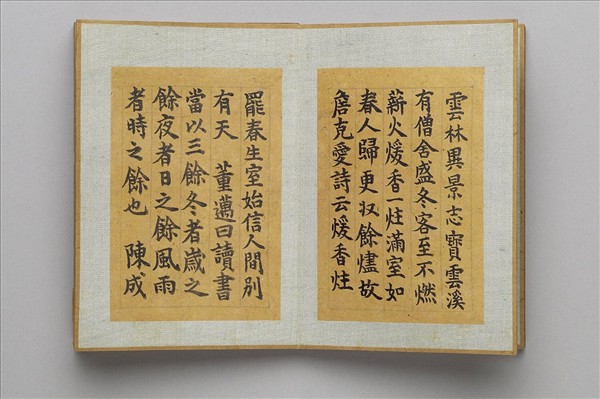 雲林異景志寳雲溪
有僧舍盛冬客至不燃
薪火煖香一炷滿室如
春人歸更収餘燼故
詹克愛詩云煖香炷
罷春生室始信人間別
有天 董邁曰讀書
當以三餘冬者歲之
餘夜者日之餘風雨
者時之餘也 陳成